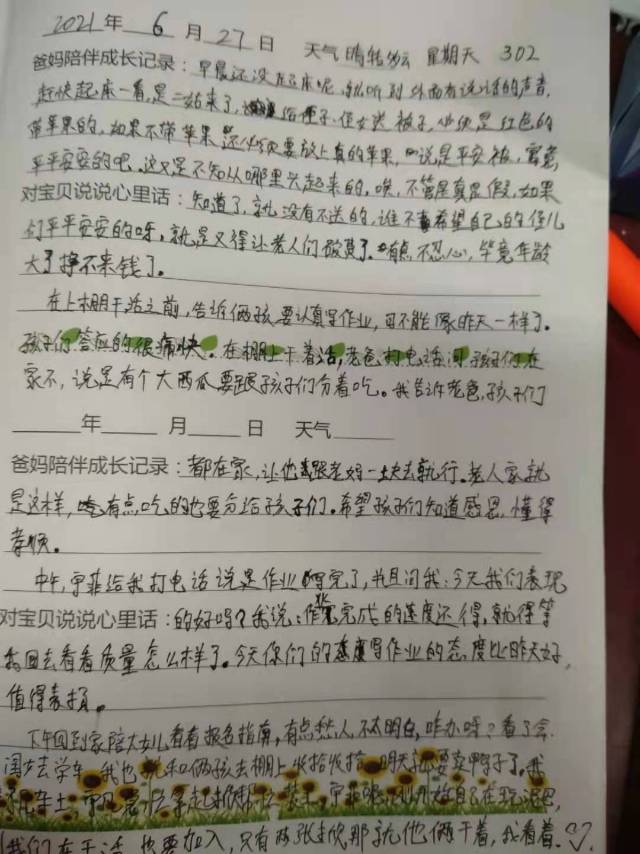 2021 年 6 月 27 日 天气 晴转多云 星期天 302
爸妈陪伴成长记录：早晨还没起床呢,就听到外面有说话的声音,
赶快起来一看,是二姑来了,给侄子、侄女送被子,必须是红色的
带苹果的,如果不带苹果还必须要放上真的苹果,说是平安被,寓意
平平安安的吧,这又是不知从哪里兴起来的,唉,不管是真是假,如果
对宝贝说说心里话：知道了,就没有不送的,谁不希望自己的侄儿
们平平安安的呀,就是又得让老人们破费了。有点不忍心,毕竟年龄
大了挣不来钱了。
在上棚干活之前,告诉俩孩要认真写作业,可不能像昨天一样了。
孩子们答应的很痛快。在棚上干着活,老爸打电话问孩子们在
家不,说是有个大西瓜要跟孩子们分着吃。我告诉老爸,孩子们
年 月 日 天气
爸妈陪伴成长记录：都在家,让他跟老妈一块去就行。老人家就
是这样,有点吃的也要分给孩子们。希望孩子们知道感恩,懂得
孝顺。
中午,宇菲给我打电话说是作业写完了,并且问我:今天我们表现
对宝贝说说心里话：的好吗?我说:作业完成的速度还得,就得等
我回去看看质量怎么样了。今天你们的写作业的态度比昨天好,
值得表扬。
下午回到家陪大女儿看看报名指南,有点愁人不太明白,咋办呀?看了会,
闺女去学车,我也就和俩孩去棚上收拾收拾,明天还要卖鸭子了,我
我们在干活,也要加入,只有两张锨那就他俩干着,我看着。♡